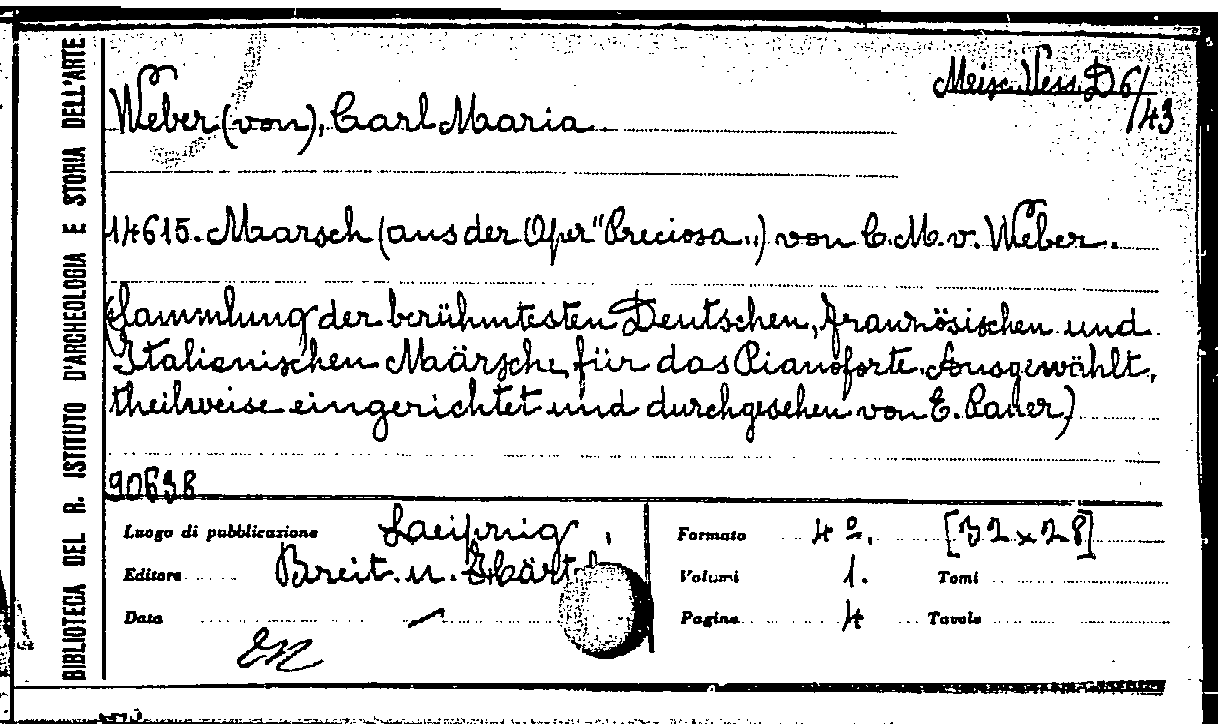 BIBLIOTECA DEL R. ISTITUTO D'ARCHEOLOGIA E STORIA DELL'ARTE
Misc. Vess. D 6/43
Weber (von), Carl Maria
14615. Marsch (aus der Oper "Preciosa„) von C. M. v. Weber.
(Sammlung der berühmtesten Deutschen, französischen und
Italianischen Maärsche, für das Pianoforte. Ausgewählt,
theilweise eingerichtet und durchgesehen von E. Pauer)
90638
Luogo di pubblicazione Laeipzig,
Editore Breit. u. Härt.
Data —
Formato 4º. [32 x 28]
Volumi 1. Tomi
Pagine 4 Tavole